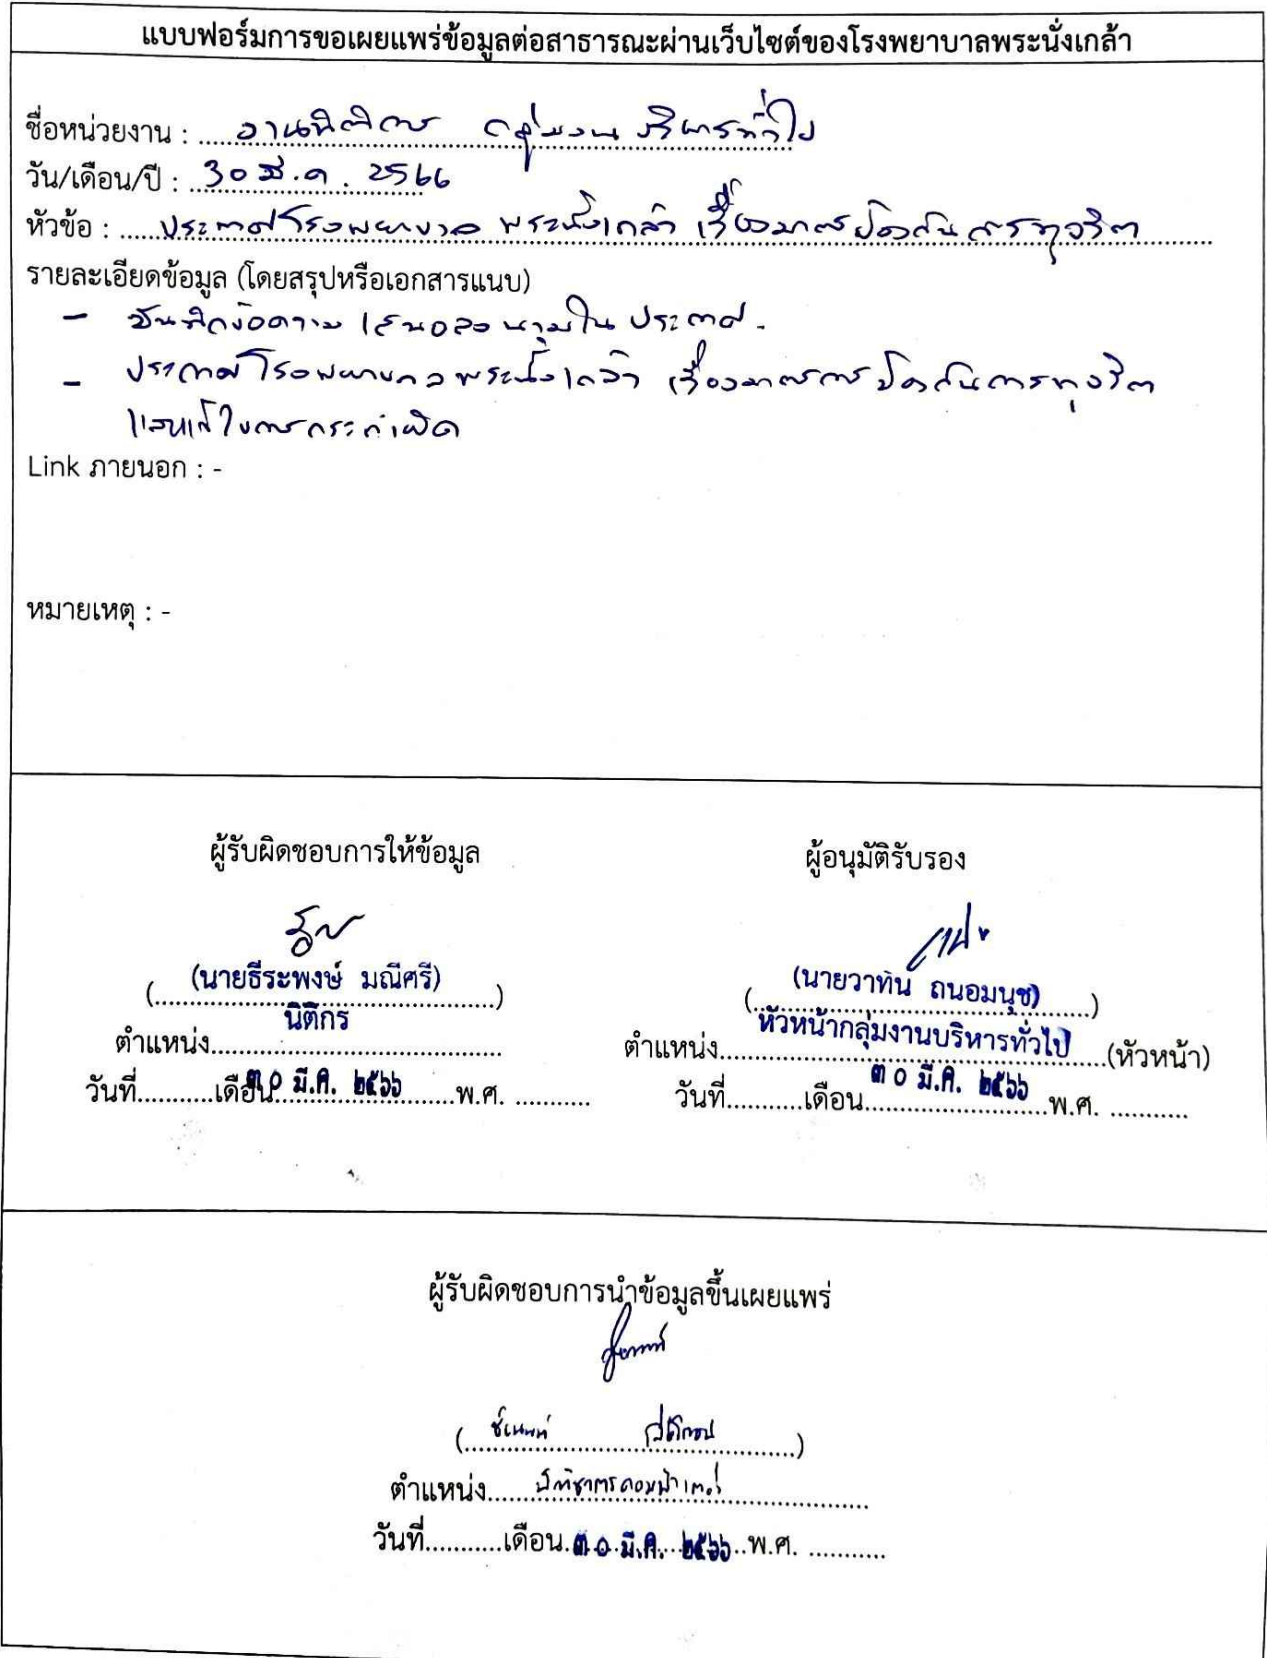 แบบฟอร์มการขอเผยแพร่ข้อมูลต่อสาธารณะผ่านเว็บไซต์ของโรงพยาบาลพระนั่งเกล้า
ชื่อหน่วยงาน : งานนิติการ กลุ่มงานบริหารทั่วไป
วัน/เดือน/ปี : 30 มี.ค. 2566
หัวข้อ : ประกาศโรงพยาบาลพระนั่งเกล้า เรื่องมาตรการป้องกันการทุจริต
รายละเอียดข้อมูล (โดยสรุปหรือเอกสารแนบ)
- บันทึกข้อความ เสนอลงนามใน ประกาศ.
- ประกาศโรงพยาบาลพระนั่งเกล้า เรื่องมาตรการป้องกันการทุจริต
และแก้ไขการกระทำผิด
Link ภายนอก : -
หมายเหตุ : -
ผู้รับผิดชอบการให้ข้อมูล ผู้อนุมัติรับรอง
(นายธีระพงษ์ มณีศรี) (นายวาทัน ถนอมนุช)
ตำแหน่ง นิติกร ตำแหน่ง หัวหน้ากลุ่มงานบริหารทั่วไป (หัวหน้า)
วันที่..........เดือน ๓๐ มี.ค. ๒๕๖๖ พ.ศ. .......... วันที่..........เดือน ๓๐ มี.ค. ๒๕๖๖ พ.ศ. ..........
ผู้รับผิดชอบการนำข้อมูลขึ้นเผยแพร่
ตำแหน่ง นักวิชาการคอมพิวเตอร์
วันที่..........เดือน ๓๐ มี.ค. ๒๕๖๖ พ.ศ. ..........